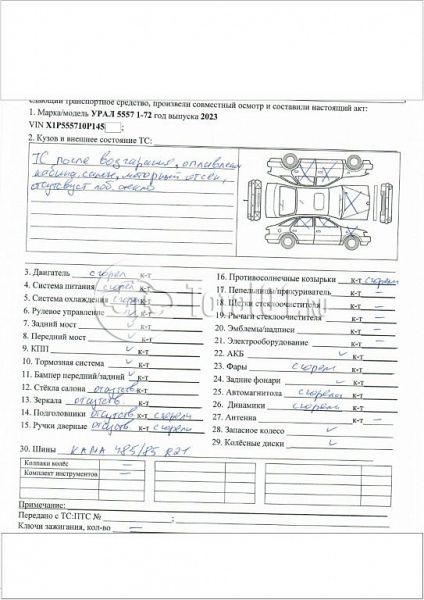 транспортное средство, произвели совместный осмотр и составили настоящий акт:
1. Марка/модель УРАЛ 5557 1-72 год выпуска 2023
VIN X1P555710P145 ;
2. Кузов и внешнее состояние ТС:
ТС после возгорания, оплавлена
кабина, салон, моторный отсек,
отсутствует лоб. стекло
3. Двигатель сгорел к-т
4. Система питания сгорел к-т
5. Система охлаждения сгорел к-т
6. Рулевое управление ✓ к-т
7. Задний мост ✓ к-т
8. Передний мост ✓ к-т
9. КПП ✓ к-т
10. Тормозная система ✓ к-т
11. Бампер передний/задний ✓ к-т
12. Стёкла салона отсутств к-т
13. Зеркала отсутств к-т
14. Подголовники отсутств к-т сгорели
15. Ручки дверные отсутств к-т сгорели
16. Противосолнечные козырьки к-т сгорели
17. Пепельницы/прикуриватель к-т –
18. Щетки стеклоочистителя к-т –
19. Рычаги стеклоочистителя к-т –
20. Эмблемы/надписи к-т –
21. Электрооборудование к-т –
22. АКБ ✓ к-т
23. Фары сгорели к-т
24. Задние фонари ✓ к-т
25. Автомагнитола сгорела к-т
26. Динамики сгорели к-т
27. Антенна – к-т
28. Запасное колесо ✓
29. Колёсные диски ✓
30. Шины КАМА 485/85 R21
Колпаки колёс –
Комплект инструментов –
Примечание:
Передано с ТС:ПТС №
Ключи зажигания, кол-во –